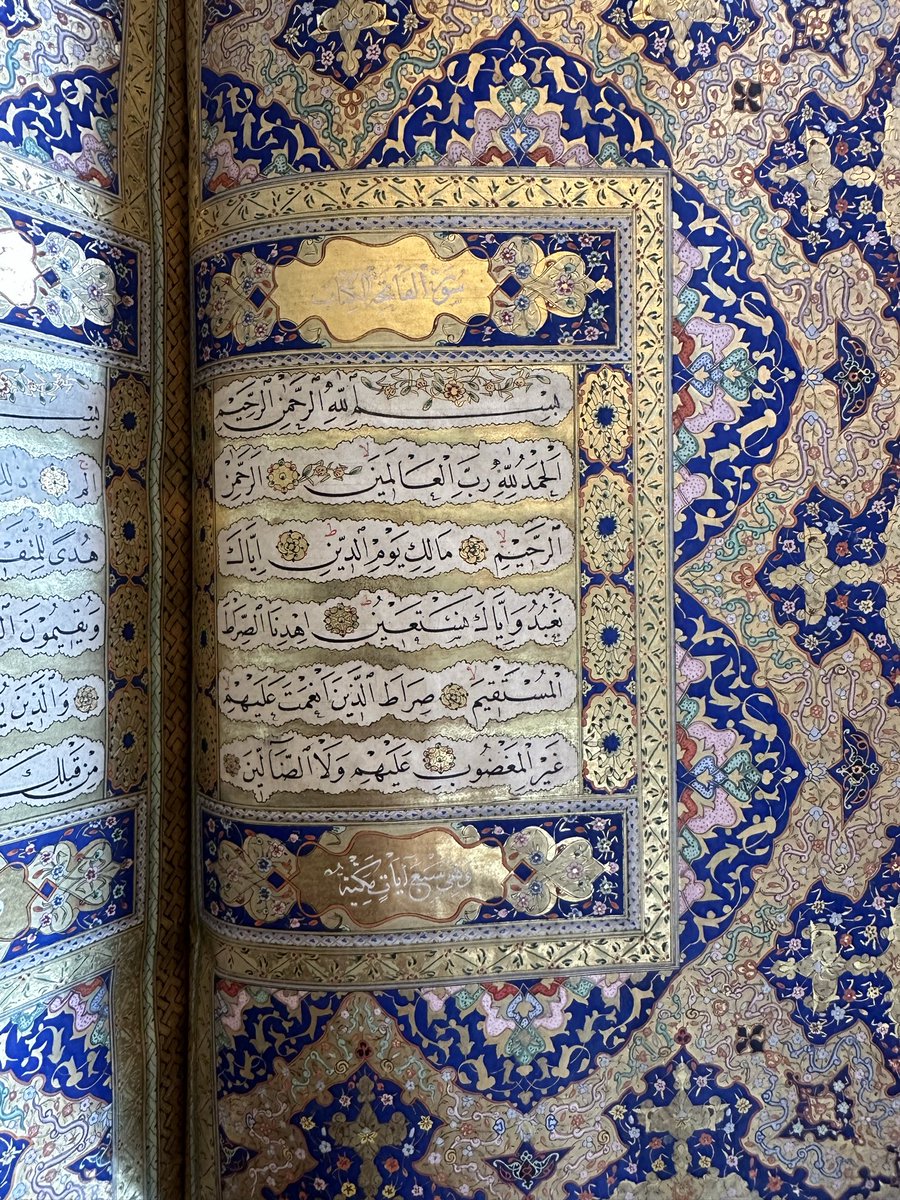 سُورَةُ الفَاتِحَةِ الْكِتَابِ
بِسْمِ اللهِ الرَّحْمٰنِ الرَّحِيمِ
اَلْحَمْدُ لِلّٰهِ رَبِّ الْعَالَمِينَ الرَّحْمٰنِ
الرَّحِيمِ مَالِكِ يَوْمِ الدِّينِ اِيَّاكَ
نَعْبُدُ وَاِيَّاكَ نَسْتَعِينُ اِهْدِنَا الصِّرَطَ
الْمُسْتَقِيمَ صِرَاطَ الَّذِينَ اَنْعَمْتَ عَلَيْهِمْ
غَيْرِ الْمَغْضُوبِ عَلَيْهِمْ وَلَا الضَّالِّينَ
وهي سَبْعُ اٰيَاتٍ مَكِّيَّة
الم ذٰلِكَ
هُدًى
وَيُقِيمُونَ
وَالَّذِينَ
مِنْ قَبْلِكَ